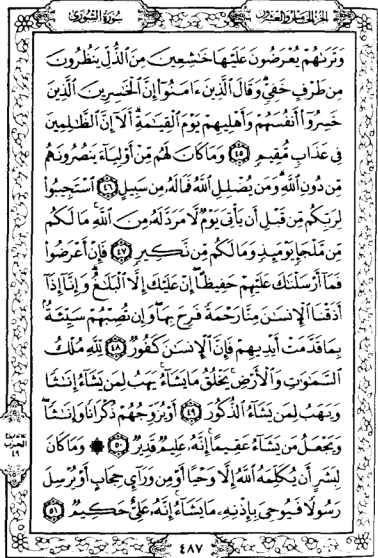 الجزء الخامس والعشرون
سورة الشورى
وَتَرَىٰهُمْ يُعْرَضُونَ عَلَيْهَا خَٰشِعِينَ مِنَ ٱلذُّلِّ يَنظُرُونَ
مِن طَرْفٍ خَفِىٍّ وَقَالَ ٱلَّذِينَ ءَامَنُوٓا۟ إِنَّ ٱلْخَٰسِرِينَ ٱلَّذِينَ
خَسِرُوٓا۟ أَنفُسَهُمْ وَأَهْلِيهِمْ يَوْمَ ٱلْقِيَٰمَةِ أَلَآ إِنَّ ٱلظَّٰلِمِينَ
فِى عَذَابٍ مُّقِيمٍ ٤٥ وَمَا كَانَ لَهُم مِّنْ أَوْلِيَآءَ يَنصُرُونَهُم
مِّن دُونِ ٱللَّهِ وَمَن يُضْلِلِ ٱللَّهُ فَمَا لَهُۥ مِن سَبِيلٍ ٤٦ ٱسْتَجِيبُوا۟
لِرَبِّكُم مِّن قَبْلِ أَن يَأْتِىَ يَوْمٌ لَّا مَرَدَّ لَهُۥ مِنَ ٱللَّهِ مَا لَكُم
مِّن مَّلْجَإٍ يَوْمَئِذٍ وَمَا لَكُم مِّن نَّكِيرٍ ٤٧ فَإِنْ أَعْرَضُوا۟
فَمَآ أَرْسَلْنَٰكَ عَلَيْهِمْ حَفِيظًا إِنْ عَلَيْكَ إِلَّا ٱلْبَلَٰغُ وَإِنَّآ إِذَآ
أَذَقْنَا ٱلْإِنسَٰنَ مِنَّا رَحْمَةً فَرِحَ بِهَا وَإِن تُصِبْهُمْ سَيِّئَةٌۢ
بِمَا قَدَّمَتْ أَيْدِيهِمْ فَإِنَّ ٱلْإِنسَٰنَ كَفُورٌ ٤٨ لِّلَّهِ مُلْكُ
ٱلسَّمَٰوَٰتِ وَٱلْأَرْضِ يَخْلُقُ مَا يَشَآءُ يَهَبُ لِمَن يَشَآءُ إِنَٰثًا
وَيَهَبُ لِمَن يَشَآءُ ٱلذُّكُورَ ٤٩ أَوْ يُزَوِّجُهُمْ ذُكْرَانًا وَإِنَٰثًا
وَيَجْعَلُ مَن يَشَآءُ عَقِيمًا إِنَّهُۥ عَلِيمٌ قَدِيرٌ ٥٠ ۞ وَمَا كَانَ
لِبَشَرٍ أَن يُكَلِّمَهُ ٱللَّهُ إِلَّا وَحْيًا أَوْ مِن وَرَآئِ حِجَابٍ أَوْ يُرْسِلَ
رَسُولًا فَيُوحِىَ بِإِذْنِهِۦ مَا يَشَآءُ إِنَّهُۥ عَلِىٌّ حَكِيمٌ ٥١
الحزب
٤٩
٤٨٧